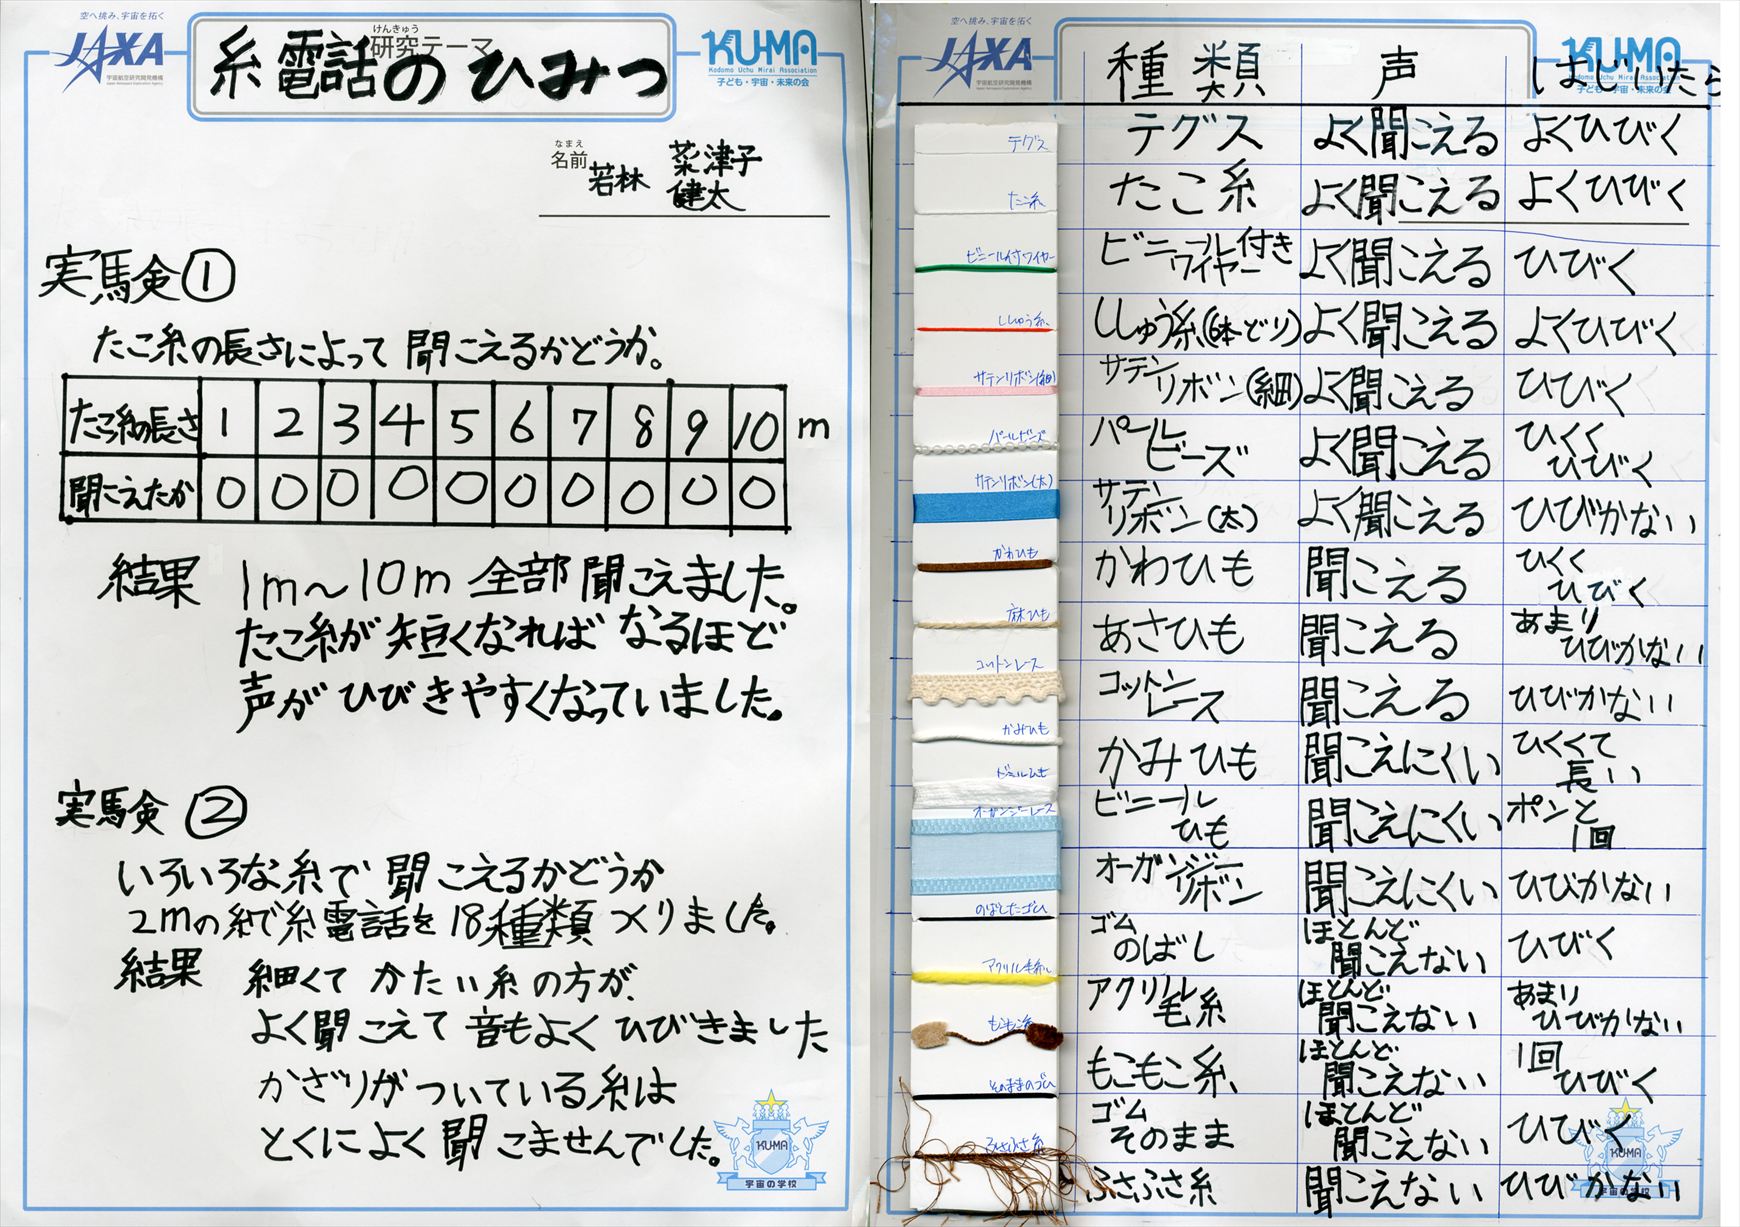 空へ挑み、宇宙を拓く
JAXA
宇宙航空研究開発機構
Japan Aerospace Exploration Agency
けんきゅう
研究テーマ
糸電話のひみつ
KU-MA
Kodomo Uchu Mirai Association
子ども・宇宙・未来の会
なまえ
名前
若林 菜津子
健太
実験①
たこ糸の長さによって聞こえるかどうか。
たこ糸の長さ 1 2 3 4 5 6 7 8 9 10 m
聞こえたか ○ ○ ○ ○ ○ ○ ○ ○ ○ ○
結果 1m〜10m 全部聞こえました。
たこ糸が短くなればなるほど
声がひびきやすくなっていました。
実験②
いろいろな糸で聞こえるかどうか
2mの糸で糸電話を18種類つくりました。
結果 細くてかたい糸の方が、
よく聞こえて音もよくひびきました
かざりがついている糸は
とくによく聞こませんでした。
KU-MA
宇宙の学校
空へ挑み、宇宙を拓く
JAXA
宇宙航空研究開発機構
Japan Aerospace Exploration Agency
KU-MA
Kodomo Uchu Mirai Association
子ども・宇宙・未来の会
種類 声 はじいたら
テグス テグス よく聞こえる よくひびく
たこ糸 たこ糸 よく聞こえる よくひびく
ビニール付ワイヤー ビニール付きワイヤー よく聞こえる ひびく
ししゅう糸 ししゅう糸(6本どり) よく聞こえる よくひびく
サテンリボン(細) サテンリボン(細) よく聞こえる ひびく
パールビーズ パールビーズ よく聞こえる ひくくひびく
サテンリボン(太) サテンリボン(太) よく聞こえる ひびかない
かわひも かわひも 聞こえる ひくくひびく
麻ひも あさひも 聞こえる あまりひびかない
コットンレース コットンレース 聞こえる ひびかない
かみひも かみひも 聞こえにくい ひくくて長い
ビニールひも ビニールひも 聞こえにくい ポンと1回
オーガンジーレース オーガンジーリボン 聞こえにくい ひびかない
のばしたゴム ゴムのばし ほとんど聞こえない ひびく
アクリル毛糸 アクリル毛糸 ほとんど聞こえない あまりひびかない
もこもこ糸 ほとんど聞こえない 1回ひびく
そのままのゴム ゴムそのまま ほとんど聞こえない ひびく
ふさふさ糸 ふさふさ糸 聞こえない ひびかない
KU-MA
宇宙の学校